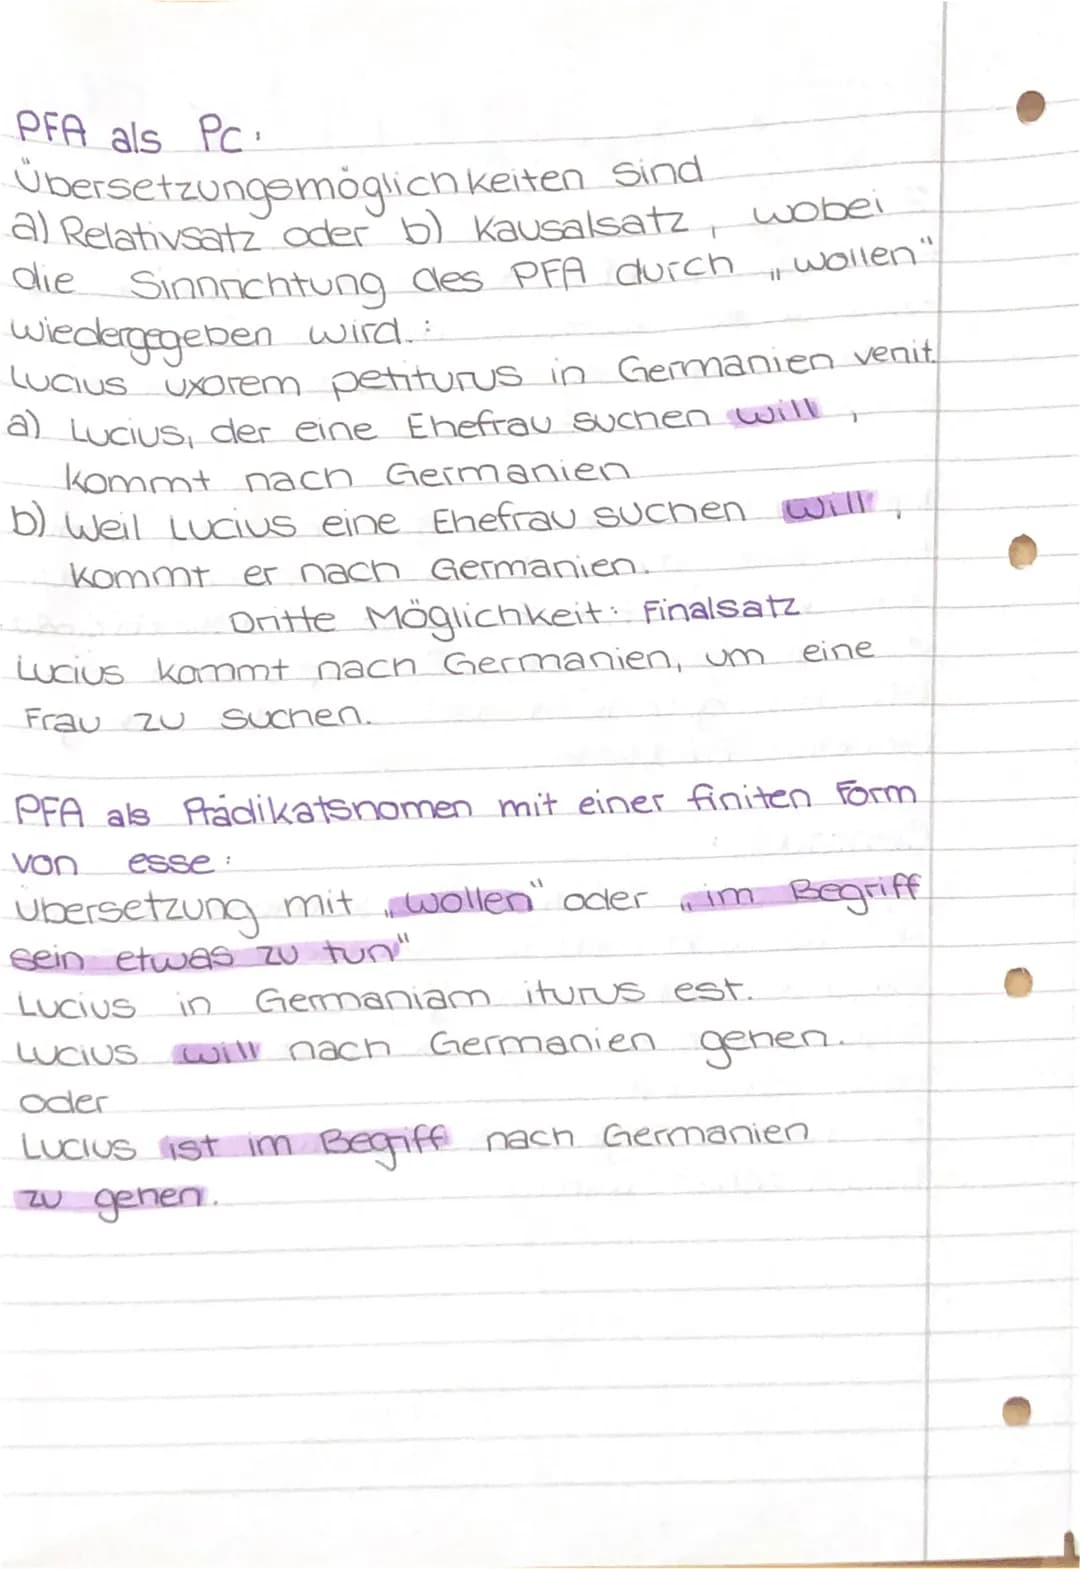 PFA als Pc:
Übersetzungsmöglichkeiten sind
a) Relativsatz oder b) Kausalsatz, wobei
die Sinnrichtung des PFA durch „wollen"
wiedergegeben wird.:
Lucius uxorem petiturus in Germanien venit.
a) Lucius, der eine Ehefrau suchen will,
kommt nach Germanien
b) Weil Lucius eine Ehefrau suchen will,
kommt er nach Germanien.
Dritte Möglichkeit: Finalsatz
Lucius kommt nach Germanien, um eine
Frau zu suchen.
PFA als Prädikatsnomen mit einer finiten Form
von esse:
Übersetzung mit „wollen" oder „im Begriff
sein etwas zu tun"
Lucius in Germaniam iturus est.
Lucius will nach Germanien gehen.
oder
Lucius ist im Begriff nach Germanien
zu gehen.